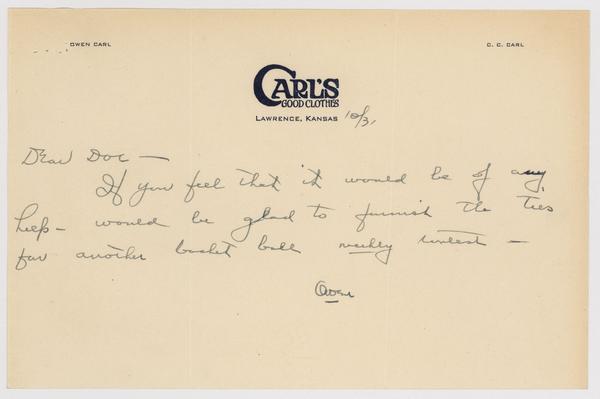 OWEN CARL
C. C. CARL
CARL'S
GOOD CLOTHES
LAWRENCE, KANSAS 10/31
Dear Doc —
If you feel that it would be of any
help — would be glad to furnish the ties
for another basket ball weekly contest —
Owen